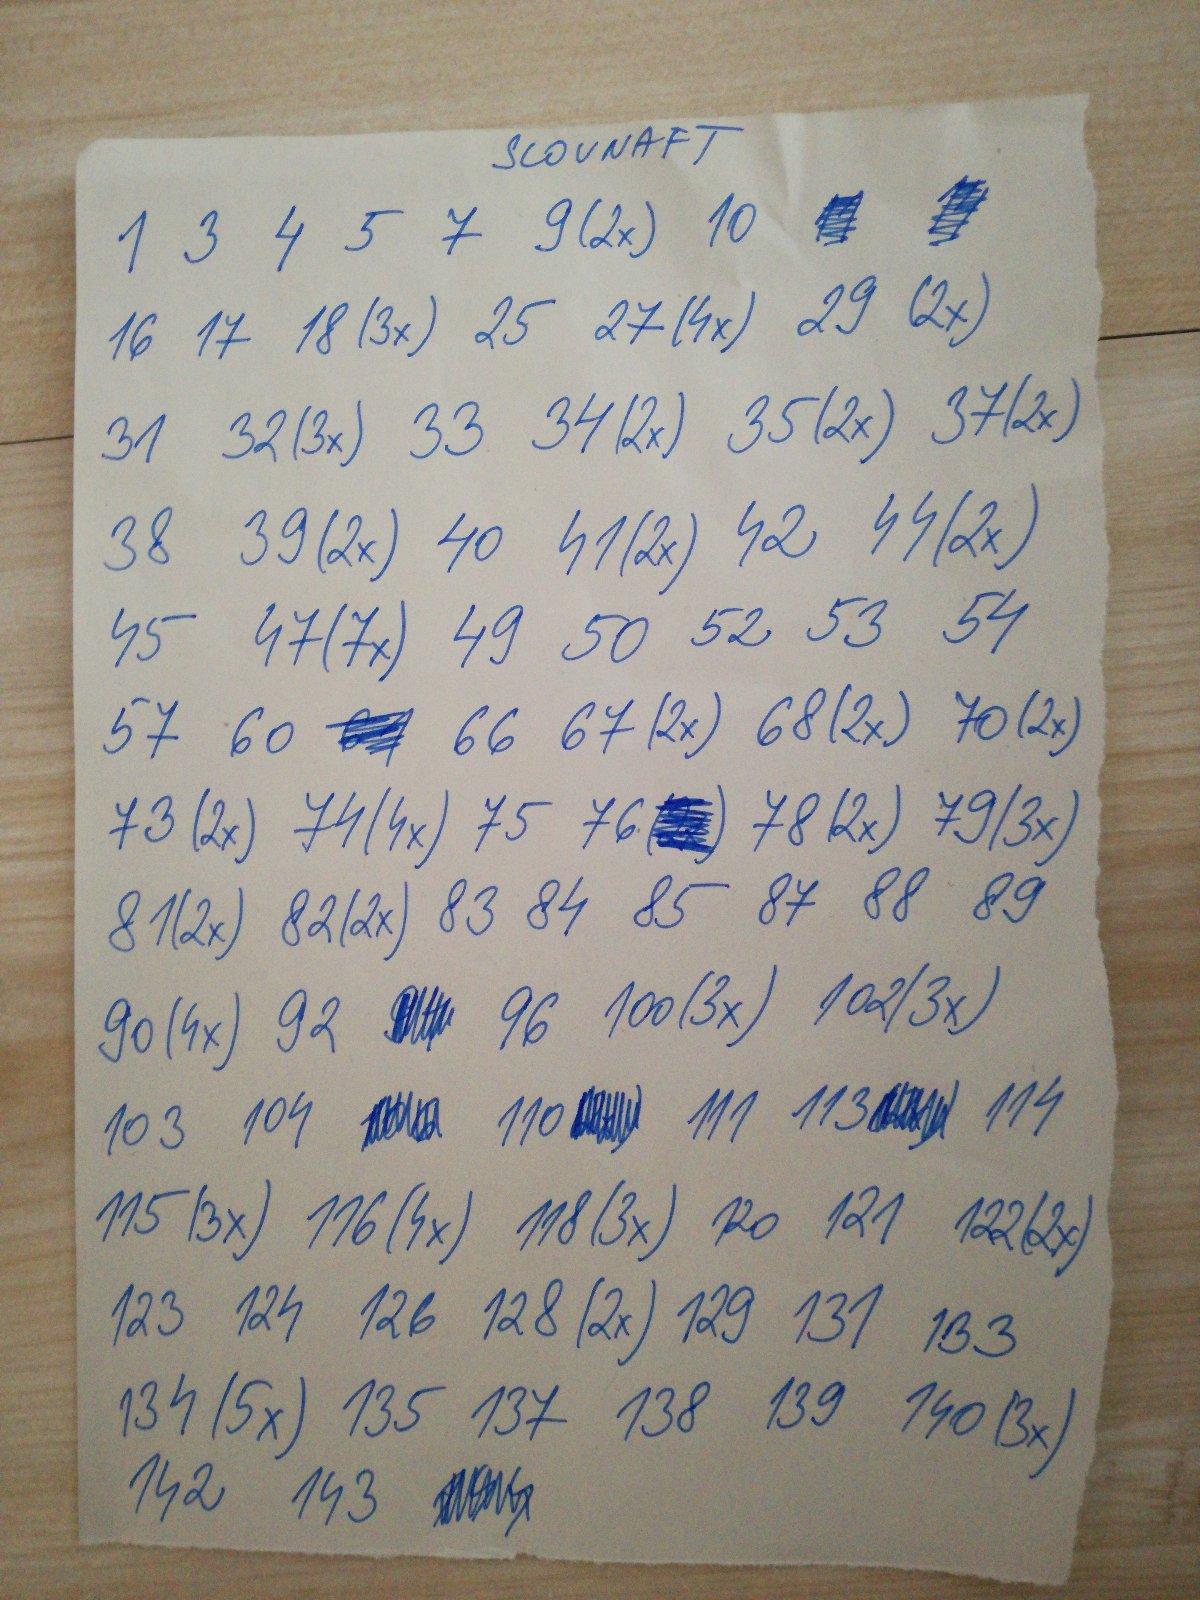 SLOVNAFT
1 3 4 5 7 9(2x) 10
16 17 18(3x) 25 27(4x) 29 (2x)
31 32(3x) 33 34(2x) 35(2x) 37(2x)
38 39(2x) 40 41(2x) 42 44(2x)
45 47(7x) 49 50 52 53 54
57 60 66 67(2x) 68(2x) 70(2x)
73(2x) 74(4x) 75 76 78(2x) 79(3x)
81(2x) 82(2x) 83 84 85 87 88 89
90(4x) 92 96 100(3x) 102(3x)
103 104 110 111 113 114
115(3x) 116(4x) 118(3x) 120 121 122(2x)
123 124 126 128(2x) 129 131 133
134(5x) 135 137 138 139 140(3x)
142 143